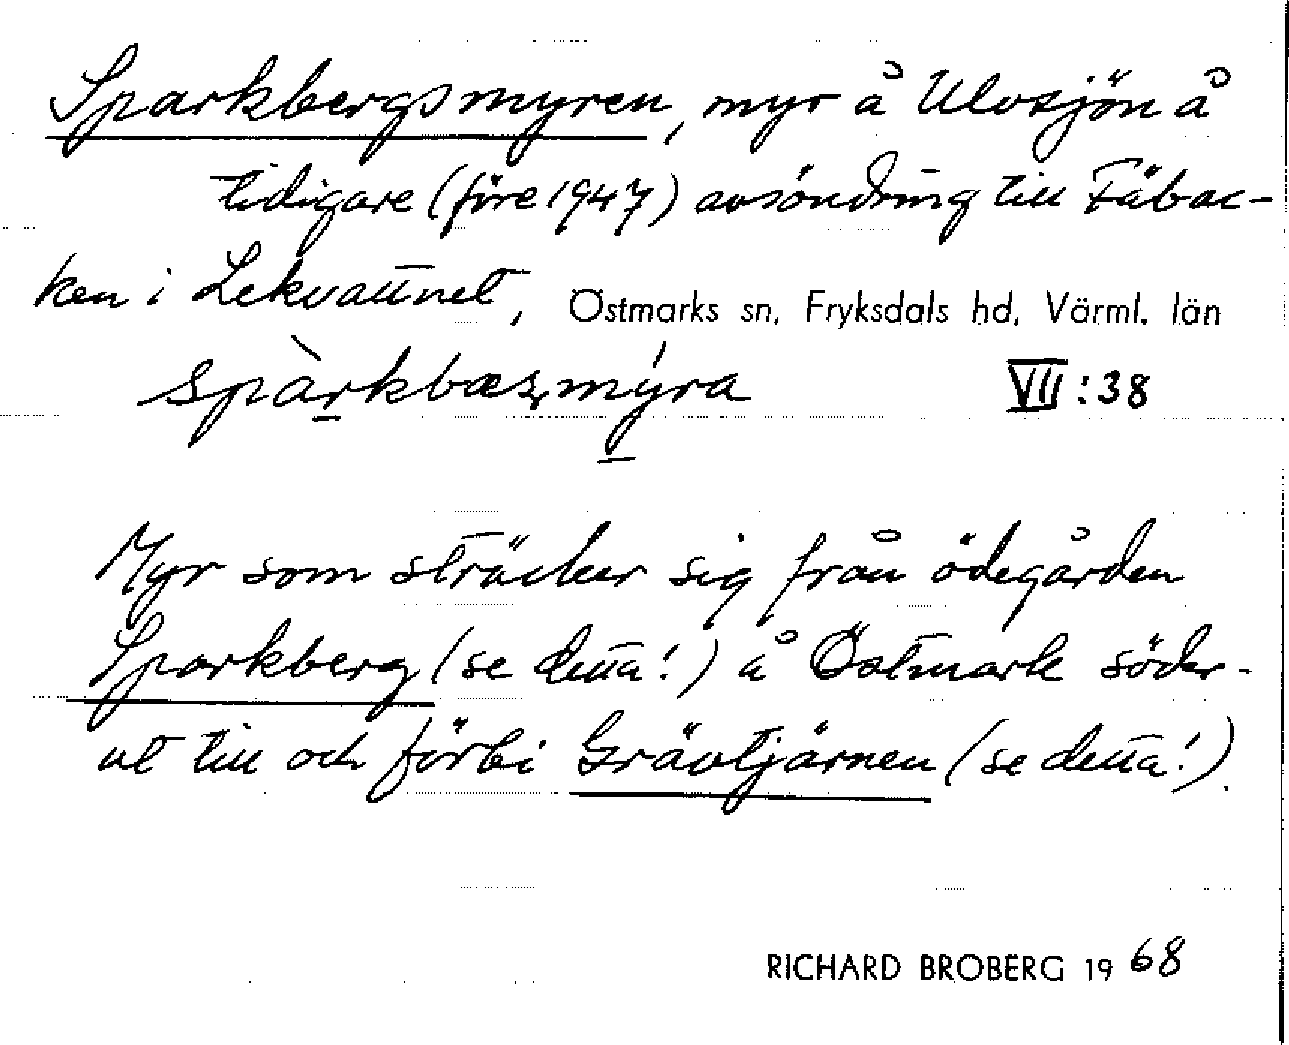 Sparkbergsmyren, myr å Ulvsjön å
tidigare (före 1947) avsöndring till Fäbac-
ken i Lekvattnet, Östmarks sn, Fryksdals hd, Värml. län
spàrkbæsmýra VII:38
Myr som sträcker sig från ödegården
Sparkberg (se detta!) å Östmark söder-
ut till och förbi Grävtjärnen (se detta!).
RICHARD BROBERG 1968